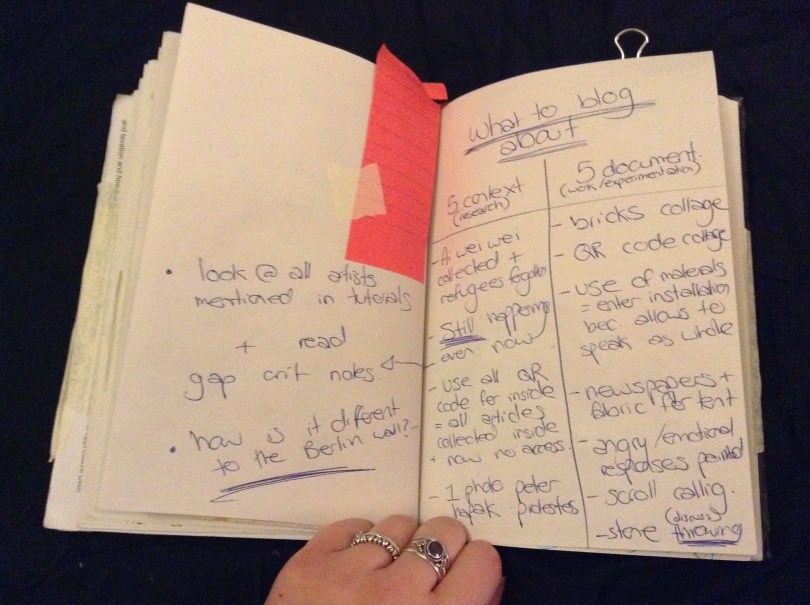 • look @ all artists
mentioned in tutorials
+ read
gap crit notes
• how is it different
to the Berlin wall?
what to blog
about
5 context
(research)
- Ai wei wei
collected +
refugees
- Still happening
even now
- use all QR
code for inside
= all articles
collected inside
+ now no access
- 1 photo peter
hapak protestes
5 document.
(work/experimentation)
- bricks collage
- QR code collage
- use of materials
= enter installation
bec allows to
speak as whole
- newspapers +
fabric for tent
- angry/emotional
responses painted
- scroll callig.
(discuss)
- stone throwing